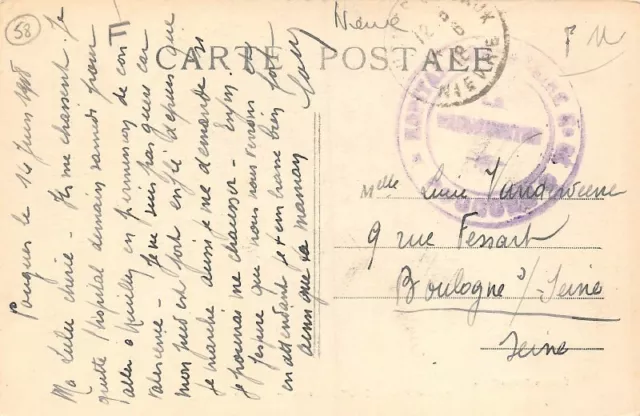 58
Nièvre
CARTE POSTALE
F M
NIÈVRE
Pougues le 14 juin 1918
Ma Lulu chérie - Ils me chassent. Je
quitte l'hôpital demain samedi pour
aller à Neuilly en permission de con
valescence - Je ne suis pas guéri car
mon pied est fort enflé depuis que
je marche aussi je me demande si
je pourrai me chausser - Enfin
j'espère que nous nous verrons
en attendant je t'embrasse bien fort
ainsi que ta maman
Melle Lucie
9 rue Fessart
Boulogne s/ Seine
Seine